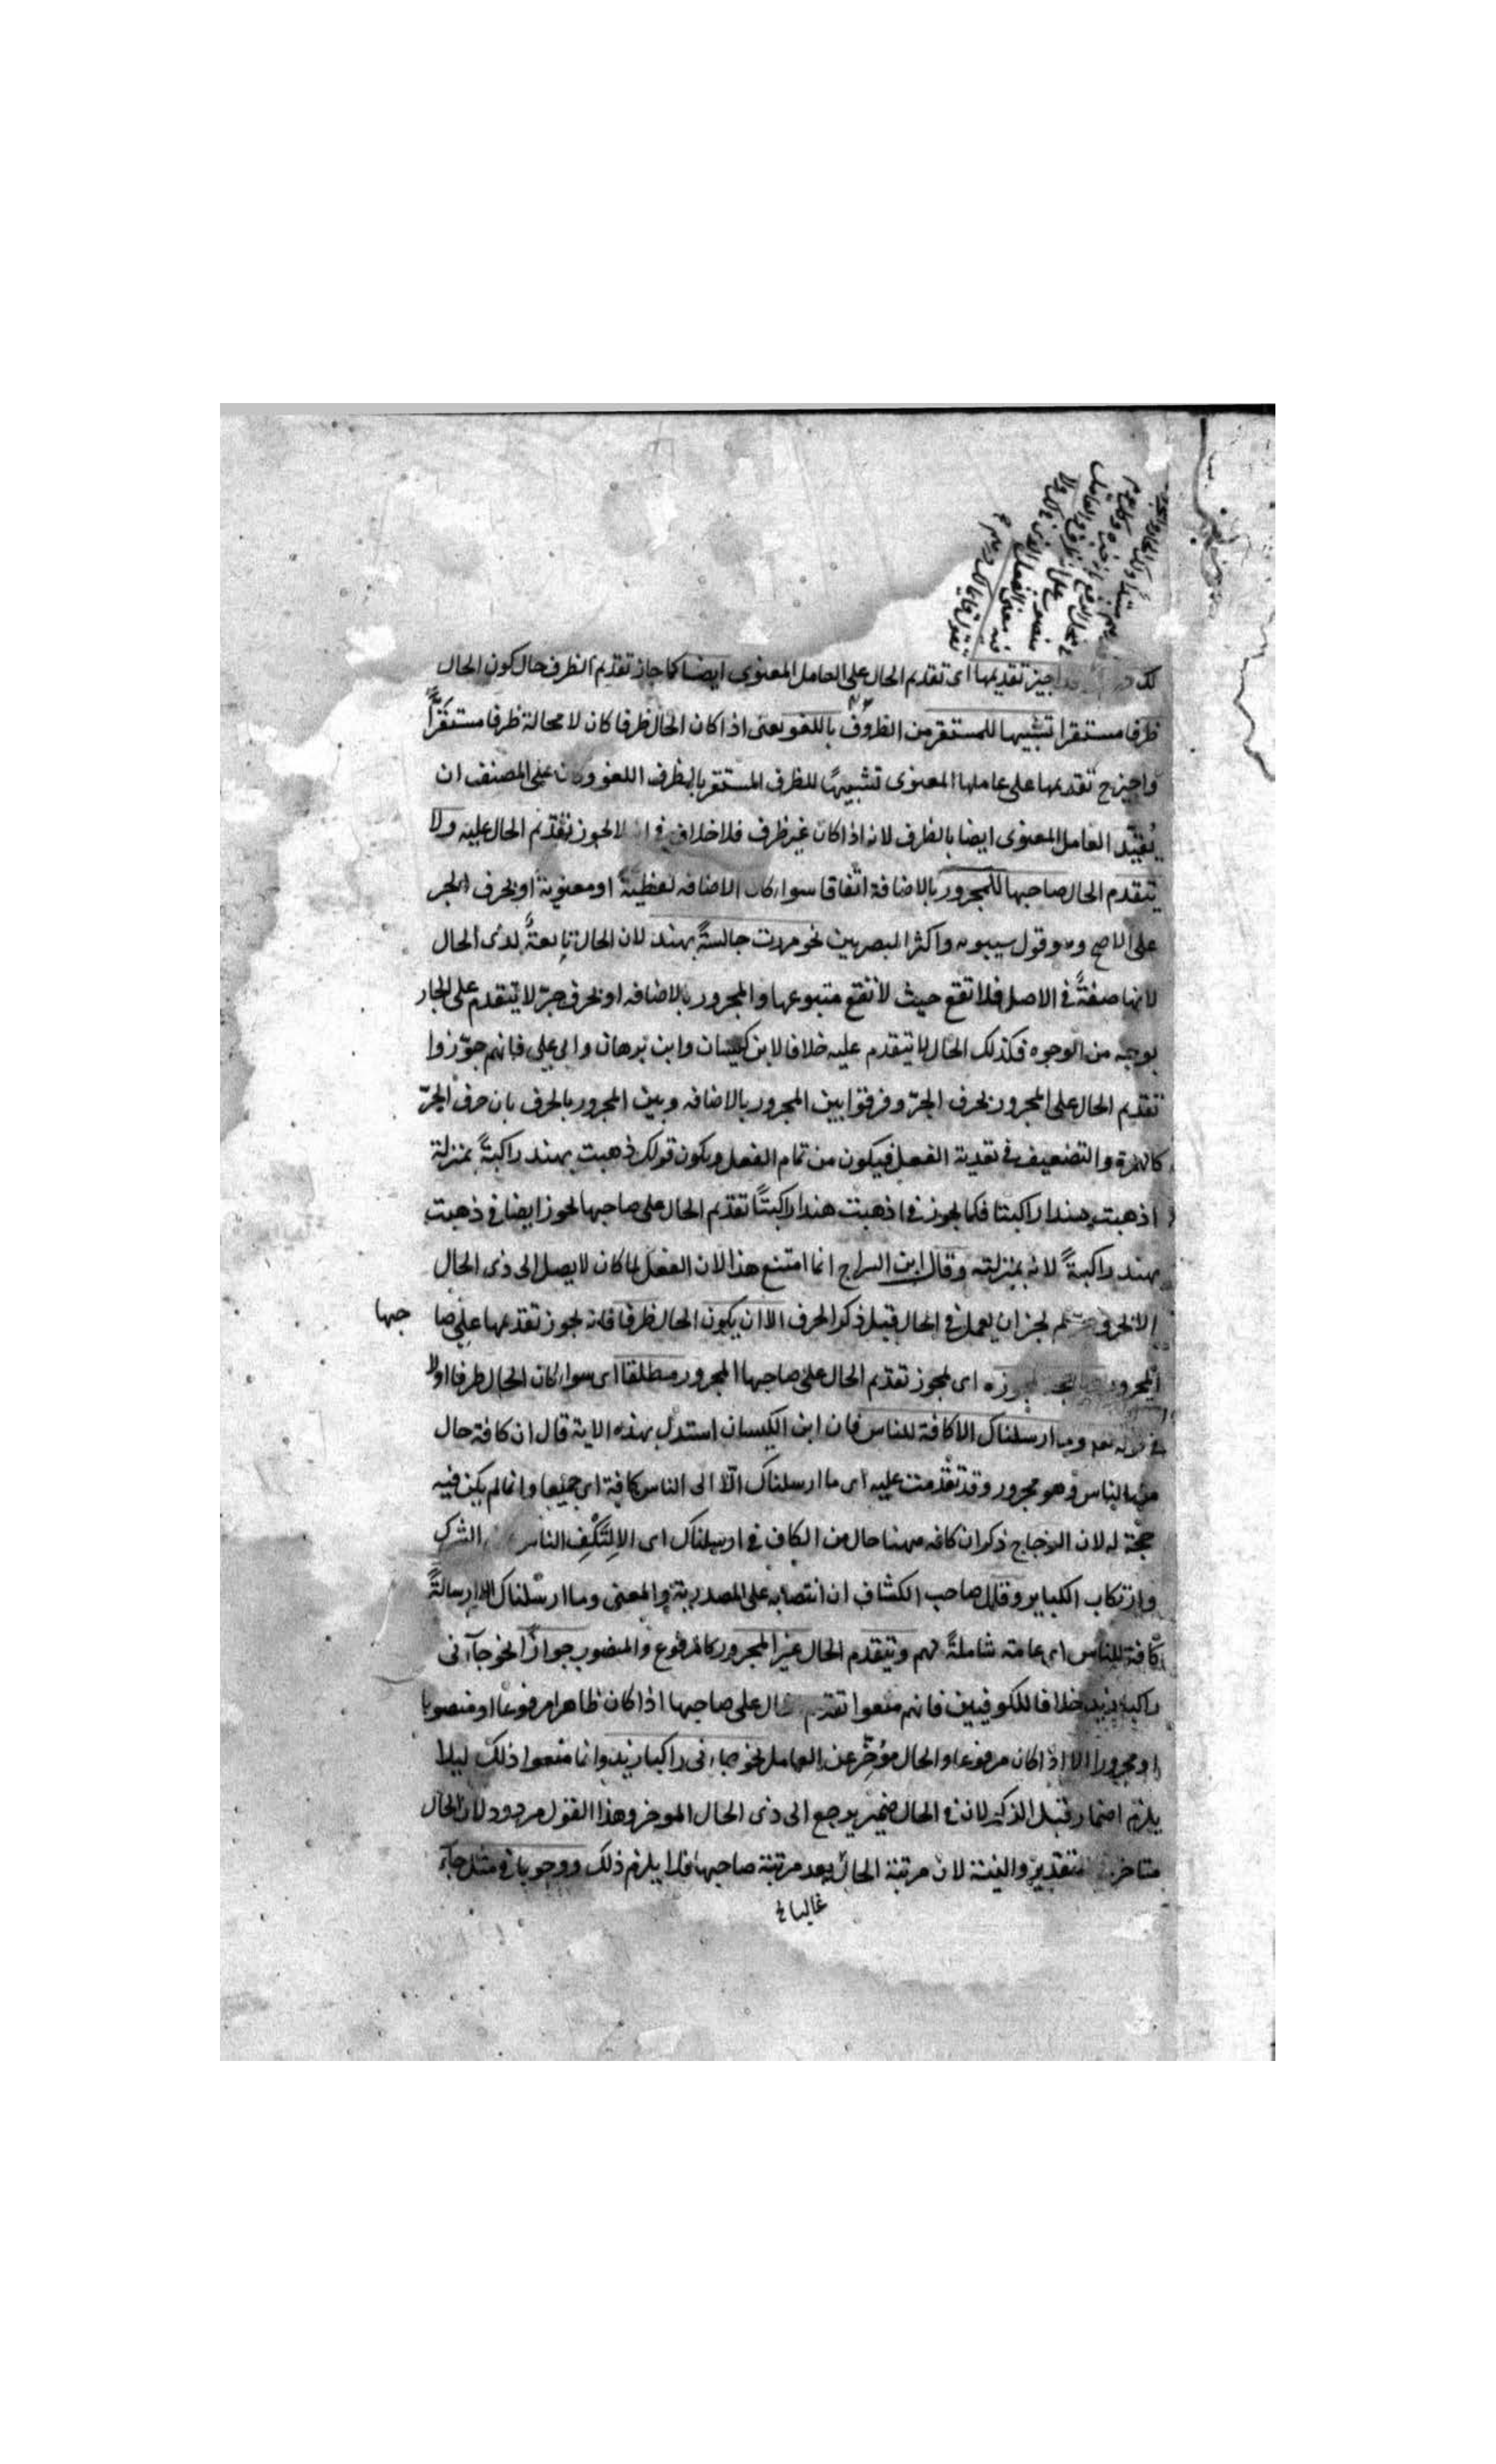 لك اجيز تقديمها اى تقديم الحال على العامل المعنوى ايضا كما جاز تقديم الظرف حال كون الحال
ظرفا مستقرا تشبيها للمستقر من الظروف باللغو يعنى اذا كان الحال ظرفا كان لا محالة ظرفا مستقرًّا
واجيز ح تقديمها على عاملها المعنوى تشبيهًا للظرف المستقر بالظرف اللغو وكان على المصنف ان
يُقيّد العامل المعنوى ايضا بالظرف لانه اذا كان غير ظرف فلا خلاف فى انه لا يجوز تقديم الحال عليه ولا
يتقدم الحال صاحبها المجرور بالاضافة اتفاقا سواء كان الاضافه لفظيةً او معنوية او بحرف الجر
على الاصح وهو قول سيبويه واكثر البصريين نحو مررت جالسةً بهند لان الحال تابعةٌ لذى الحال
لانها صفةٌ فى الاصل فلا تقع حيث لا تقع متبوعها والمجرور بالاضافه او بحرف جرّ لا يتقدم على الجار
بوجه من الوجوه فكذلك الحال لا يتقدم عليه خلافا لابن كيسان وابن برهان وابى على فانهم جوّزوا
تقديم الحال على المجرور بحرف الجرّ وفرقوا بين المجرور بالاضافه وبين المجرور بالحرف بان حرف الجرّ
كالهمزة والتضعيف فى تعدية الفعل فيكون من تمام الفعل ويكون قولك ذهبت بهند راكبةً بمنزلة
اذهبت هندا راكبتا فكما يجوز فى اذهبت هندا راكبتًا تقديم الحال على صاحبها يجوز ايضا فى ذهبت
بهند راكبةً لانه بمنزلته وقال ابن السراج انما امتنع هذا لان الفعل لما كان لا يصل الى ذى الحال
الا بحرف جر لم يجز ان يعمل فى الحال قبل ذكر الحرف الا ان يكون الحال ظرفا فانه يجوز تقديمها على صا
حبها
المجرور يجوزه اى يجوز تقديم الحال على صاحبها المجرور مطلقا اى سواء كان الحال ظرفا اولا
فى قوله تعم وما ارسلناك الا كافة للناس فان ابن الكيسان استدل بهذه الاية قال ان كافة حال
من الناس وهو مجرور وقد تقدمت عليه اى ما ارسلناك الّا الى الناس كافة اى جميعا وانما لم يكن فيه
حجّة له لان الزجاج ذكر ان كافه ههنا حال من الكاف فى ارسلناك اى الا لِتَكُفَّ الناس الشرك
وارتكاب الكباير وقال صاحب الكشاف ان انتصابه على المصدرية والمعنى وما ارسلناك الا ارسالةً
كافة للناس اى عامة شاملةً لهم ويتقدم الحال غير المجرور كالمرفوع والمنصوب جوازًا نحو جاءنى
راكبا زيد خلافا للكوفيين فانهم منعوا تقديم الحال على صاحبها اذا كان ظاهرا مرفوعًا او منصوبا
او مجرورا الا اذا كان مرفوعا والحال مؤخّر عن العامل نحو جاءنى راكبا زيد وانما منعوا ذلك ليلا
يلزم اضمار قبل الذكر لان فى الحال ضمير يرجع الى ذى الحال الموخر وهذا القول مردود لان الحال
متاخر تقدير والنية لان مرتبة الحال بعد مرتبة صاحبها فلا يلزم ذلك ووجوبا فى مثل جاء
غالبا